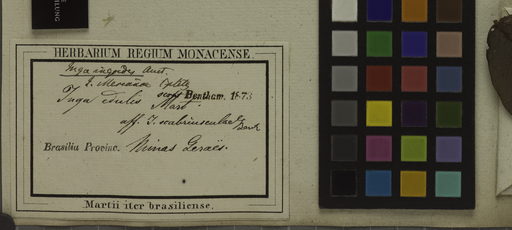 LUNG
HERBARIUM REGIUM MONACENSE.
Inga ingoides Auct.
Inga edulis Mart.
scrps. Bentham. 1873
aff. I. scabriuscula Benth
Brasilia Provinc. Minas Geraës.
Martii iter brasiliense.